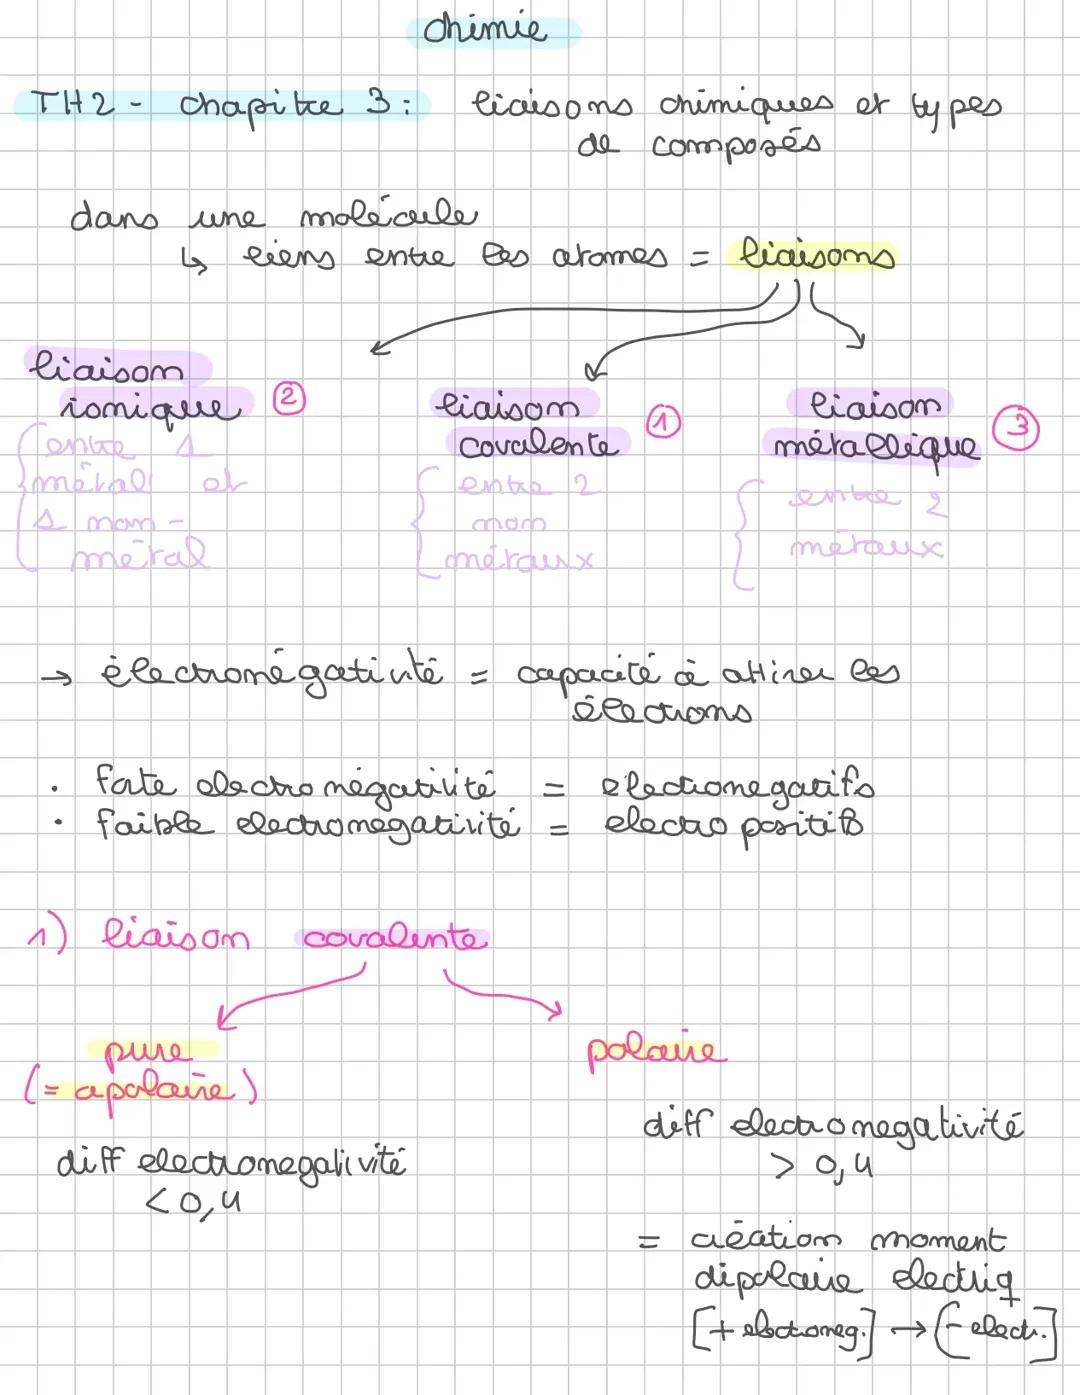 chimie
TH2 - chapitre 3 : liaisons chimiques et types
de composés
dans une molécule
↳ liens entre les atomes = liaisons
liaison
ionique ②
entre 1
métal et
1 non-
métal
liaison
covalente ①
entre 2
non
métaux
liaison
métallique ③
entre 2
métaux
→ électronégativité = capacité à attirer les
électrons
• forte electronégativité = électronegatifs
• faible electronégativité = electropositifs
1) liaison covalente
pure
(= apolaire)
diff electronegativité
< 0,4
polaire
diff electronegativité
> 0,4
= création moment
dipolaire electriq
[+ electroneg.] → [- electr.]